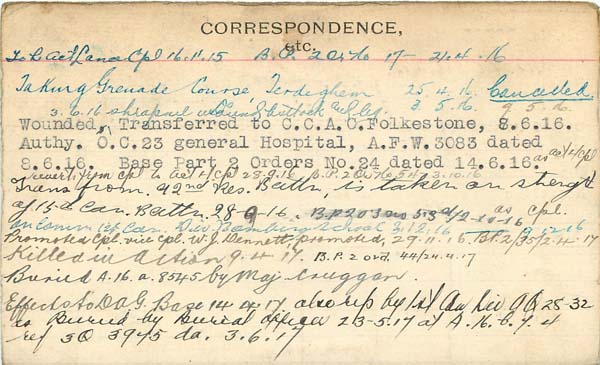 CORRESPONDENCE,
etc.
To be act Lance Cpl 16.11.15 B.O. 2 Ord No 17 - 21.4.16
Taking Grenade Course, Terdeghem 25.4.16. Cancelled
3.6.16 shrapnel wound buttock & leg 3.5.16. 9.5.16.
Wounded, Transferred to C.C.A.C. Folkestone, 8.6.16.
Authy. O.C. 23 general Hospital, A.F.W. 3083 dated
8.6.16. Base Part 2 Orders No. 24 dated 14.6.16. as act L/Cpl
revert from cpl to act L/Cpl 28.9.16 B.P. 2 Ord No 54 3.10.16
Trans from 92nd Res. Battn, is taken on strength
of 15th Can. Battn. 28-9-16. B.P.2 O as cpl.
Can. Div Bombing School 3.12.16
Promoted Cpl. vice Cpl. W.J. Dennett, promoted, 29.11.16. B.P.2/35/2.4.17
Killed in Action 9.4.17. B.P. 2 ord. 44/24.4.17
Buried A.16.a.8545 by Maj Cruggan.
Effects to D.A.G. Base 14.4.17 also rep by 1st Can Div 28-32
as Buried by Burial officer 23-5.17 at A.16.b.7.4
ref 3Q 3945 da. 3.6.17